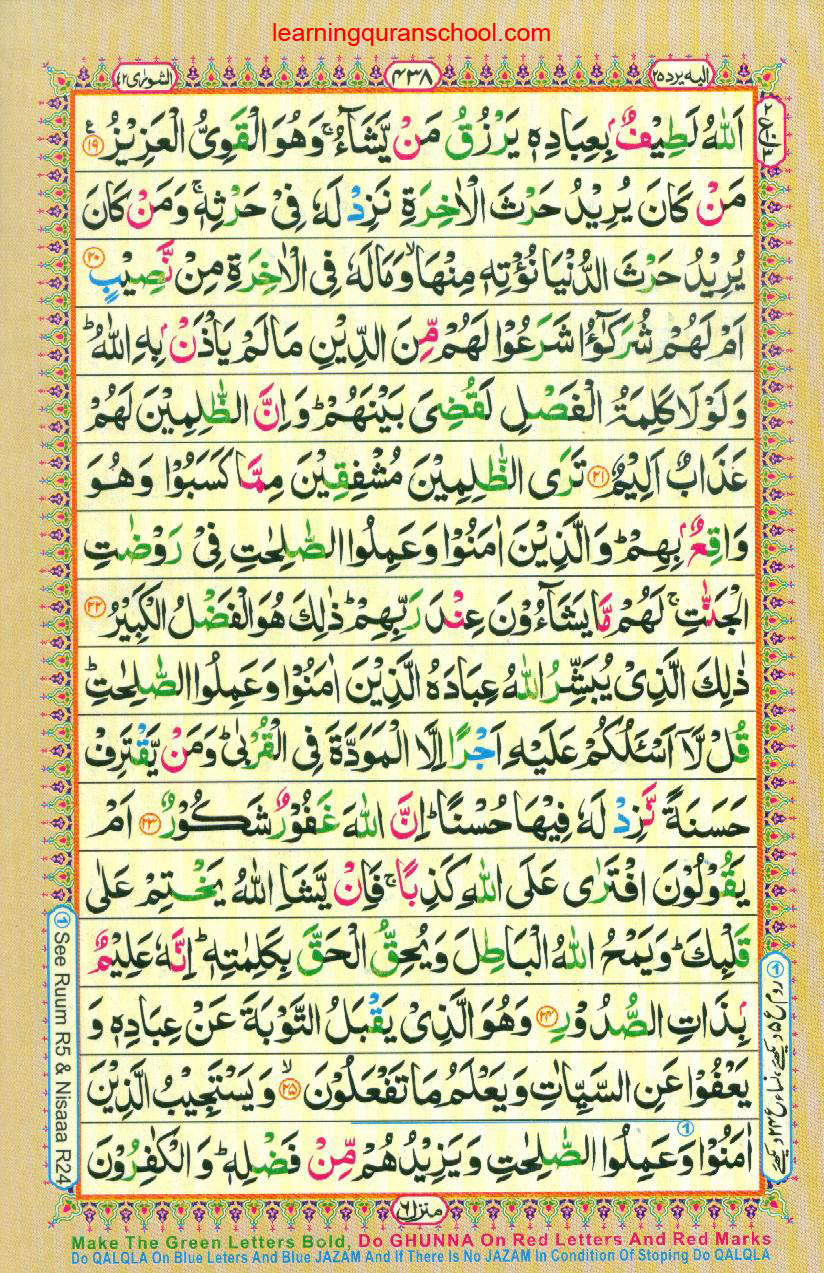 learningquranschool.com
الشورٰی ۴۲
۴۳۸
الیه یرد ۲۵
اَللّٰهُ لَطِیْفٌۢ بِعِبَادِهٖ یَرْزُقُ مَنْ یَّشَآءُ ۚ وَهُوَ الْقَوِیُّ الْعَزِیْزُ ﴿۱۹﴾ ع
مَنْ كَانَ یُرِیْدُ حَرْثَ الْاٰخِرَةِ نَزِدْ لَهٗ فِیْ حَرْثِهٖ ۚ وَمَنْ كَانَ
یُرِیْدُ حَرْثَ الدُّنْیَا نُؤْتِهٖ مِنْهَا ۙ وَمَا لَهٗ فِی الْاٰخِرَةِ مِنْ نَّصِیْبٍ ﴿۲۰﴾
اَمْ لَهُمْ شُرَكٰٓؤُا شَرَعُوْا لَهُمْ مِّنَ الدِّیْنِ مَا لَمْ یَاْذَنْۢ بِهِ اللّٰهُ ؕ
وَلَوْلَا كَلِمَةُ الْفَصْلِ لَقُضِیَ بَیْنَهُمْ ؕ وَاِنَّ الظّٰلِمِیْنَ لَهُمْ
عَذَابٌ اَلِیْمٌ ﴿۲۱﴾ تَرَی الظّٰلِمِیْنَ مُشْفِقِیْنَ مِمَّا كَسَبُوْا وَهُوَ
وَاقِعٌۢ بِهِمْ ؕ وَالَّذِیْنَ اٰمَنُوْا وَعَمِلُوا الصّٰلِحٰتِ فِیْ رَوْضٰتِ
الْجَنّٰتِ ۚ لَهُمْ مَّا یَشَآءُوْنَ عِنْدَ رَبِّهِمْ ؕ ذٰلِكَ هُوَ الْفَضْلُ الْكَبِیْرُ ﴿۲۲﴾
ذٰلِكَ الَّذِیْ یُبَشِّرُ اللّٰهُ عِبَادَهُ الَّذِیْنَ اٰمَنُوْا وَعَمِلُوا الصّٰلِحٰتِ ؕ
قُلْ لَّاۤ اَسْـَٔلُكُمْ عَلَیْهِ اَجْرًا اِلَّا الْمَوَدَّةَ فِی الْقُرْبٰی ؕ وَمَنْ یَّقْتَرِفْ
حَسَنَةً نَّزِدْ لَهٗ فِیْهَا حُسْنًا ؕ اِنَّ اللّٰهَ غَفُوْرٌ شَكُوْرٌ ﴿۲۳﴾ اَمْ
یَقُوْلُوْنَ افْتَرٰی عَلَی اللّٰهِ كَذِبًا ۚ فَاِنْ یَّشَاِ اللّٰهُ یَخْتِمْ عَلٰی
قَلْبِكَ ؕ وَیَمْحُ اللّٰهُ الْبَاطِلَ وَیُحِقُّ الْحَقَّ بِكَلِمٰتِهٖ ؕ اِنَّهٗ عَلِیْمٌۢ
بِذَاتِ الصُّدُوْرِ ﴿۲۴﴾ وَهُوَ الَّذِیْ یَقْبَلُ التَّوْبَةَ عَنْ عِبَادِهٖ وَ
یَعْفُوْا عَنِ السَّیِّاٰتِ وَیَعْلَمُ مَا تَفْعَلُوْنَ ﴿۲۵﴾ ۙ وَیَسْتَجِیْبُ الَّذِیْنَ
اٰمَنُوْا وَعَمِلُوا الصّٰلِحٰتِ وَیَزِیْدُهُمْ مِّنْ فَضْلِهٖ ؕ وَالْكٰفِرُوْنَ
① See Ruum R5 & Nisaaa R24
منزل ۶
Make The Green Letters Bold, Do GHUNNA On Red Letters And Red Marks
Do QALQLA On Blue Leters And Blue JAZAM And If There Is No JAZAM In Condition Of Stoping Do QALQLA